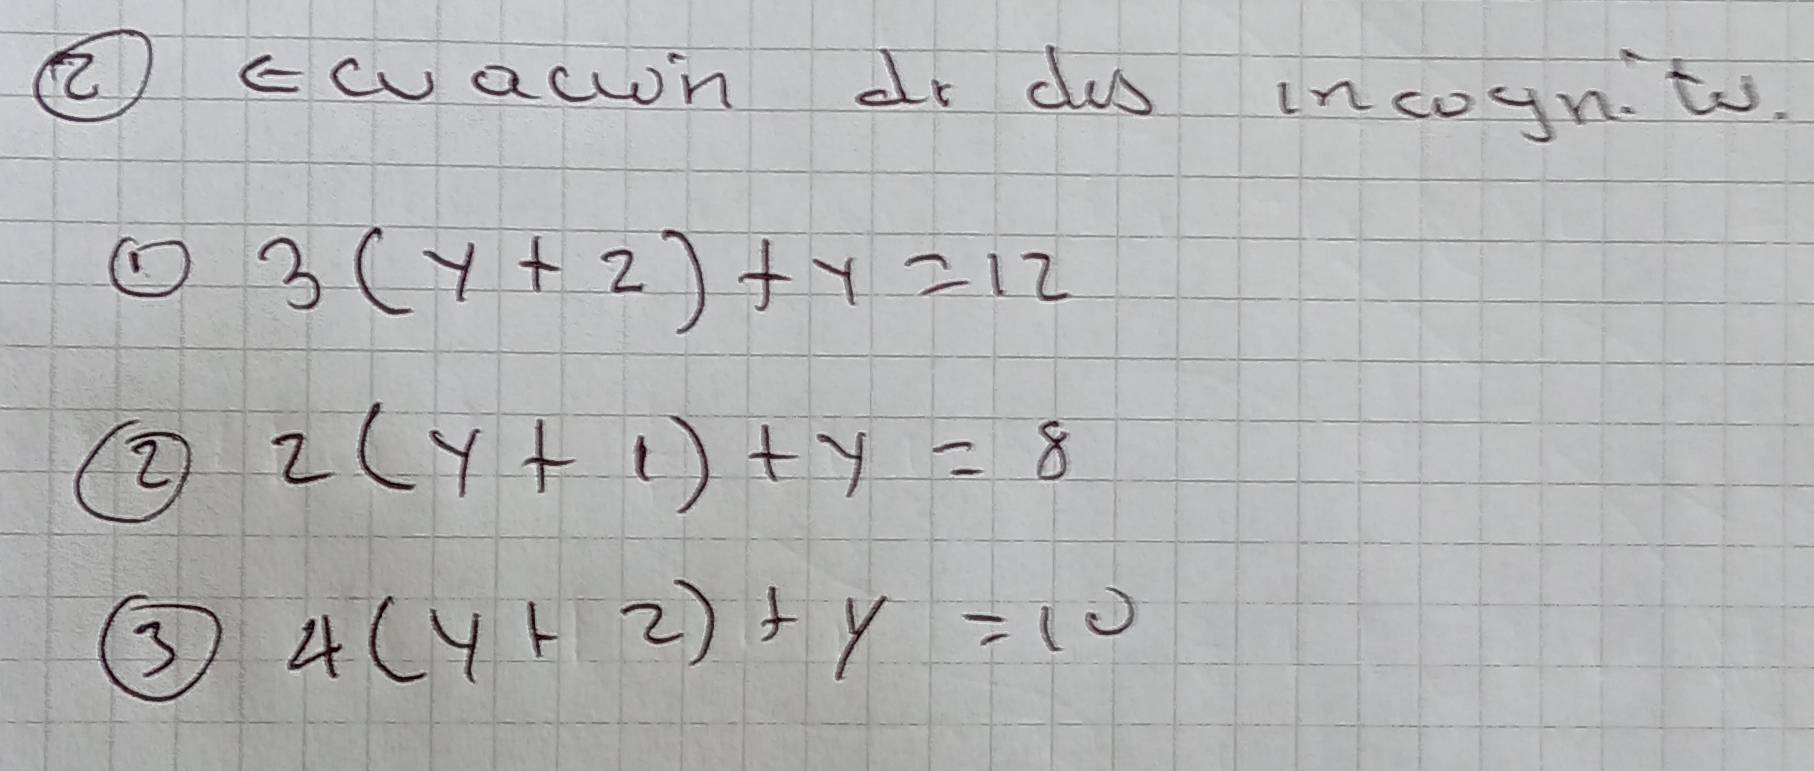 ② Ecuación de dos incognitas.
① 3(y+2)+y=12
② 2(y+1)+y=8
③ 4(y+2)+y=10